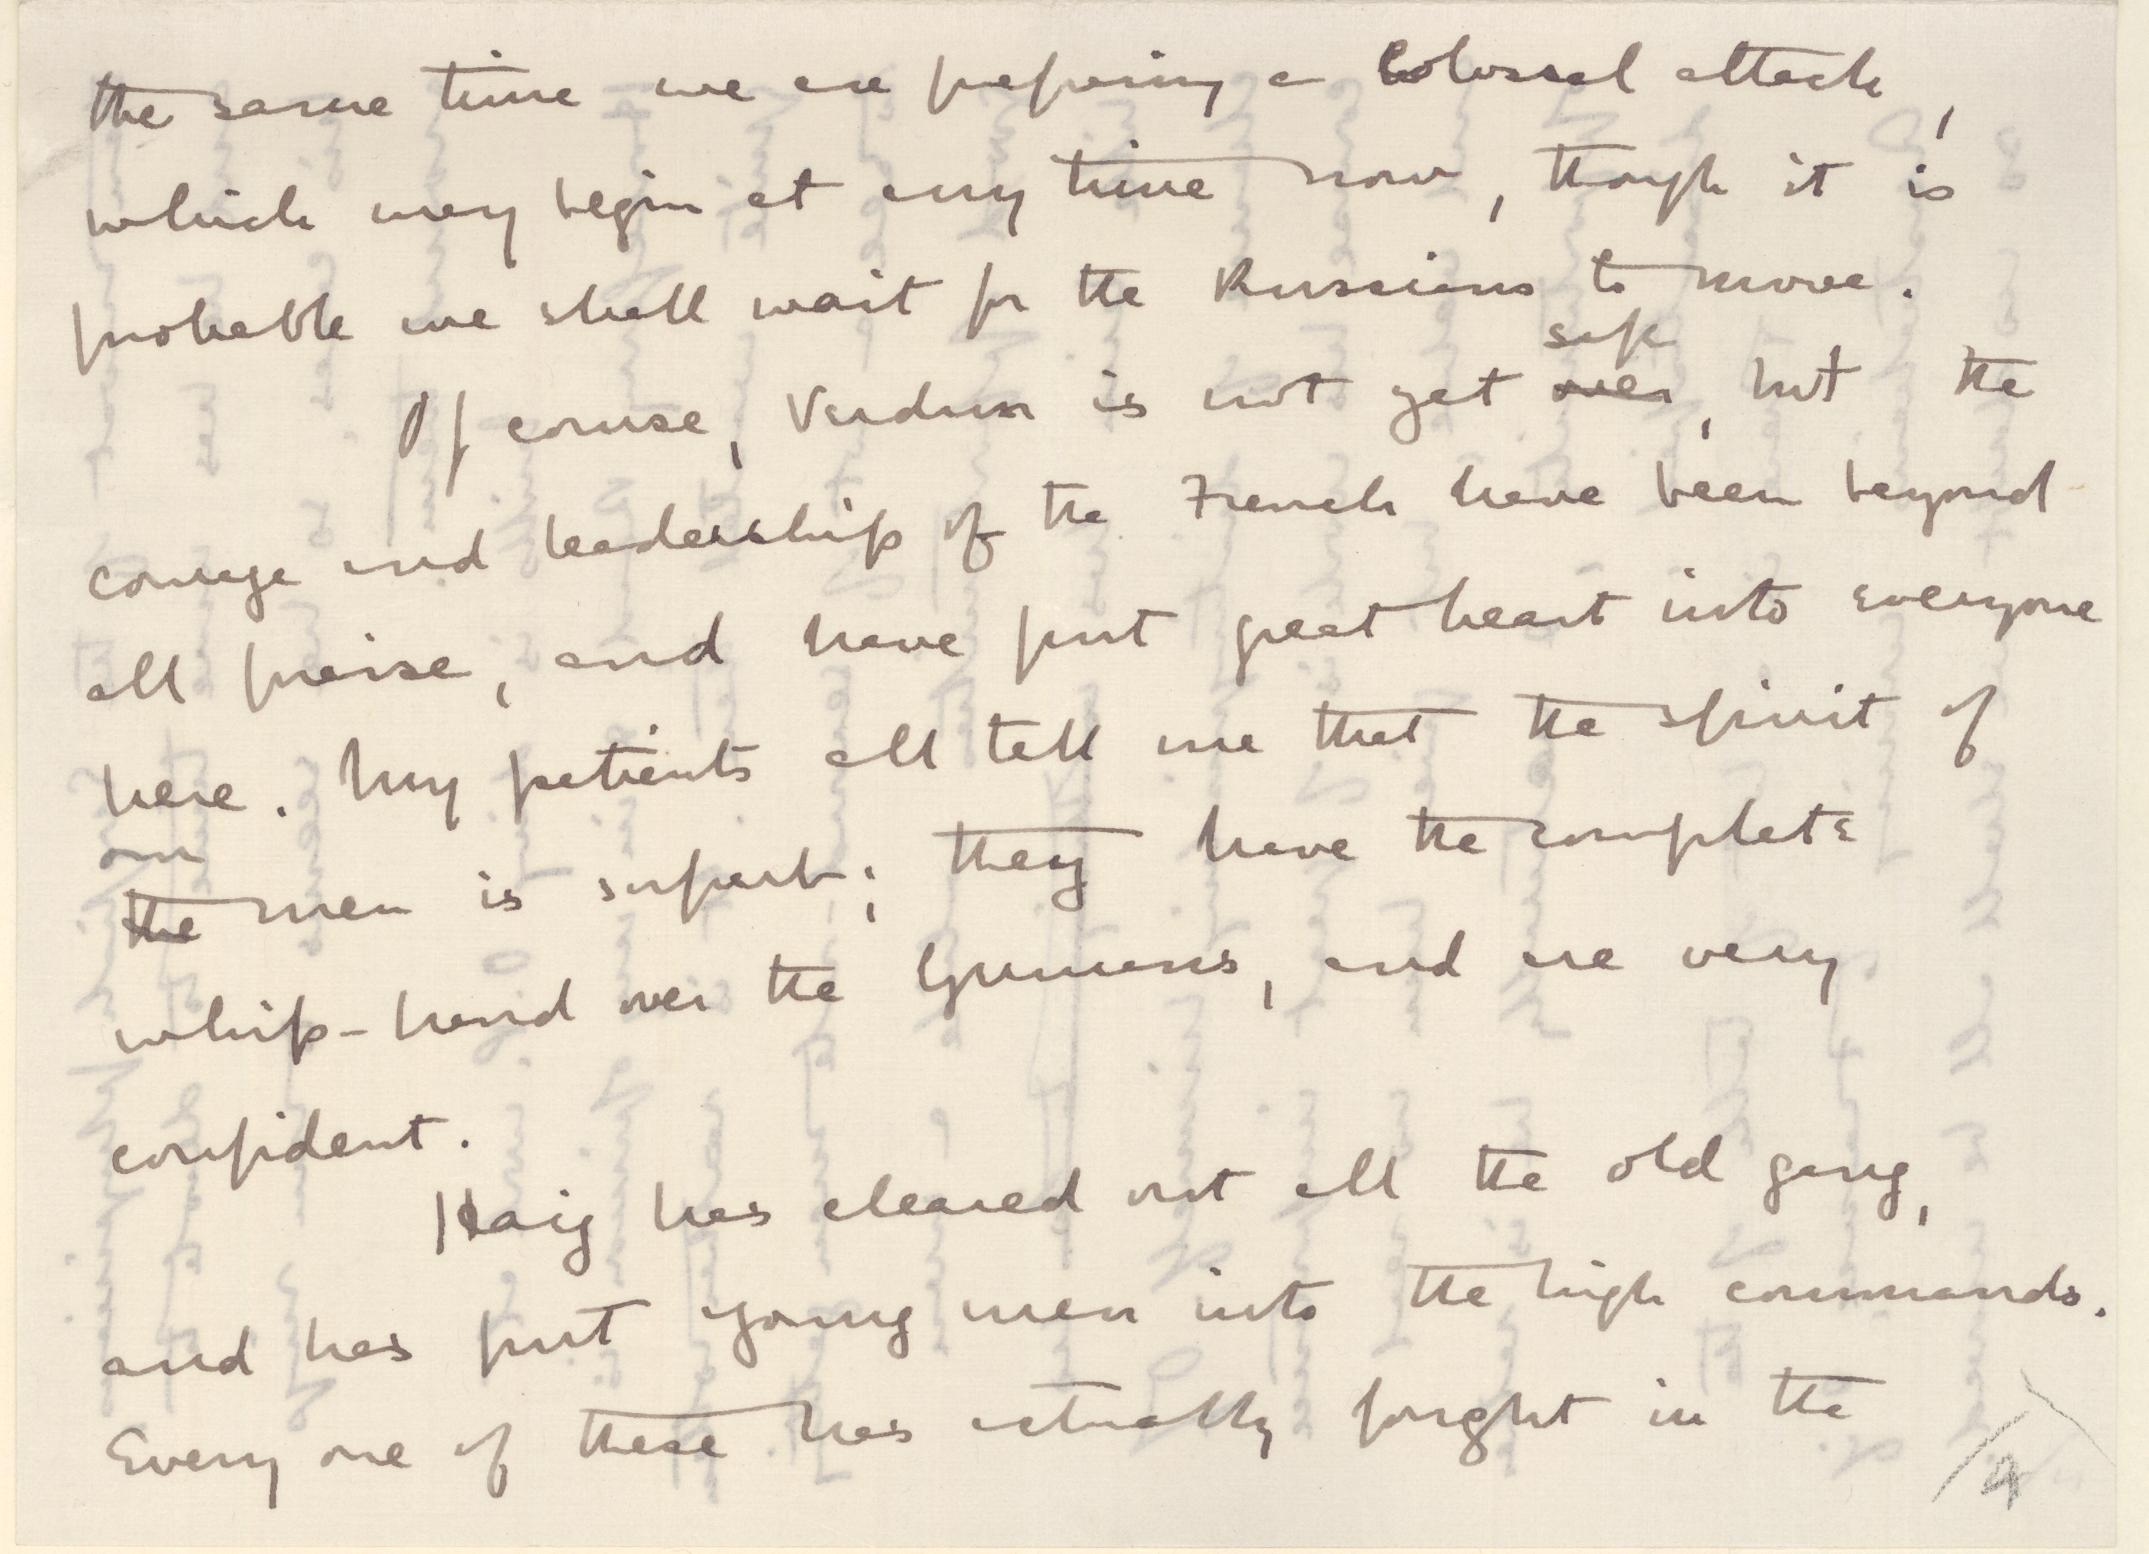 the same time we are preparing a colossal attack,
which may begin at any time now, though it is
probable we shall wait for the Russians to move.
safe
Of course, Verdun is not yet over, but the
courage and leadership of the French have been beyond
all praise, and have put great heart into everyone
here. My patients all tell me that the spirit of
our
the men is superb; they have the complete
whip-hand over the Germans, and are very
confident.
Haig has cleared out all the old gang,
and has put young men into the high commands.
Every one of these has actually fought in the
4